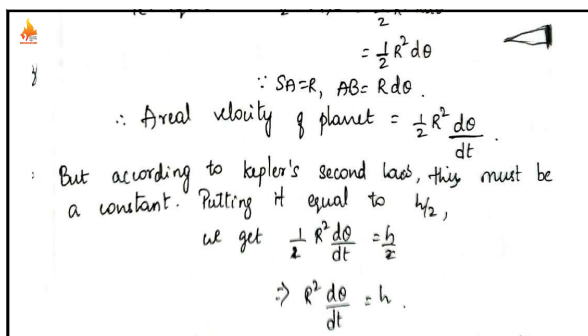 = 1/2 R² dθ
∵ SA=R, AB= R dθ.
∴ Areal velocity of planet = 1/2 R² dθ/dt.
But according to Kepler's second law, this must be
a constant. Putting it equal to h/2,
we get 1/2 R² dθ/dt = h/2
⇒ R² dθ/dt = h.